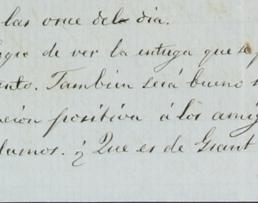 las once del dia.
de ver la entrega que se
ento. Tambien será bueno
ción positiva á los ami
damos. ¿ Que es de Grant